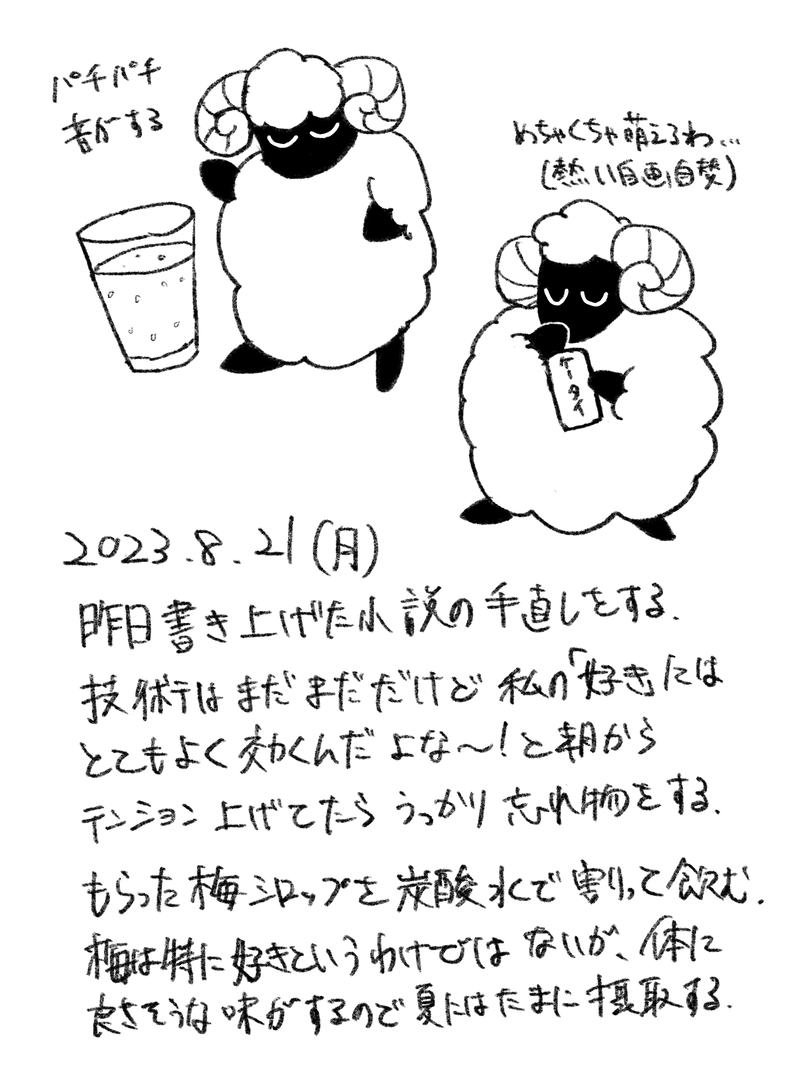 パチパチ
音がする
めちゃくちゃ萌えるわ…
(熱い自画自賛)
ケータイ
2023.8.21(月)
昨日書き上げた小説の手直しをする.
技術はまだまだだけど 私の「好き」には
とてもよく効くんだよな〜!と朝から
テンション上げてたら うっかり 忘れ物をする.
もらった梅シロップを炭酸水で割って飲む.
梅は特に好きというわけではないが、体に
良さそうな味がするので夏にはたまに摂取する.